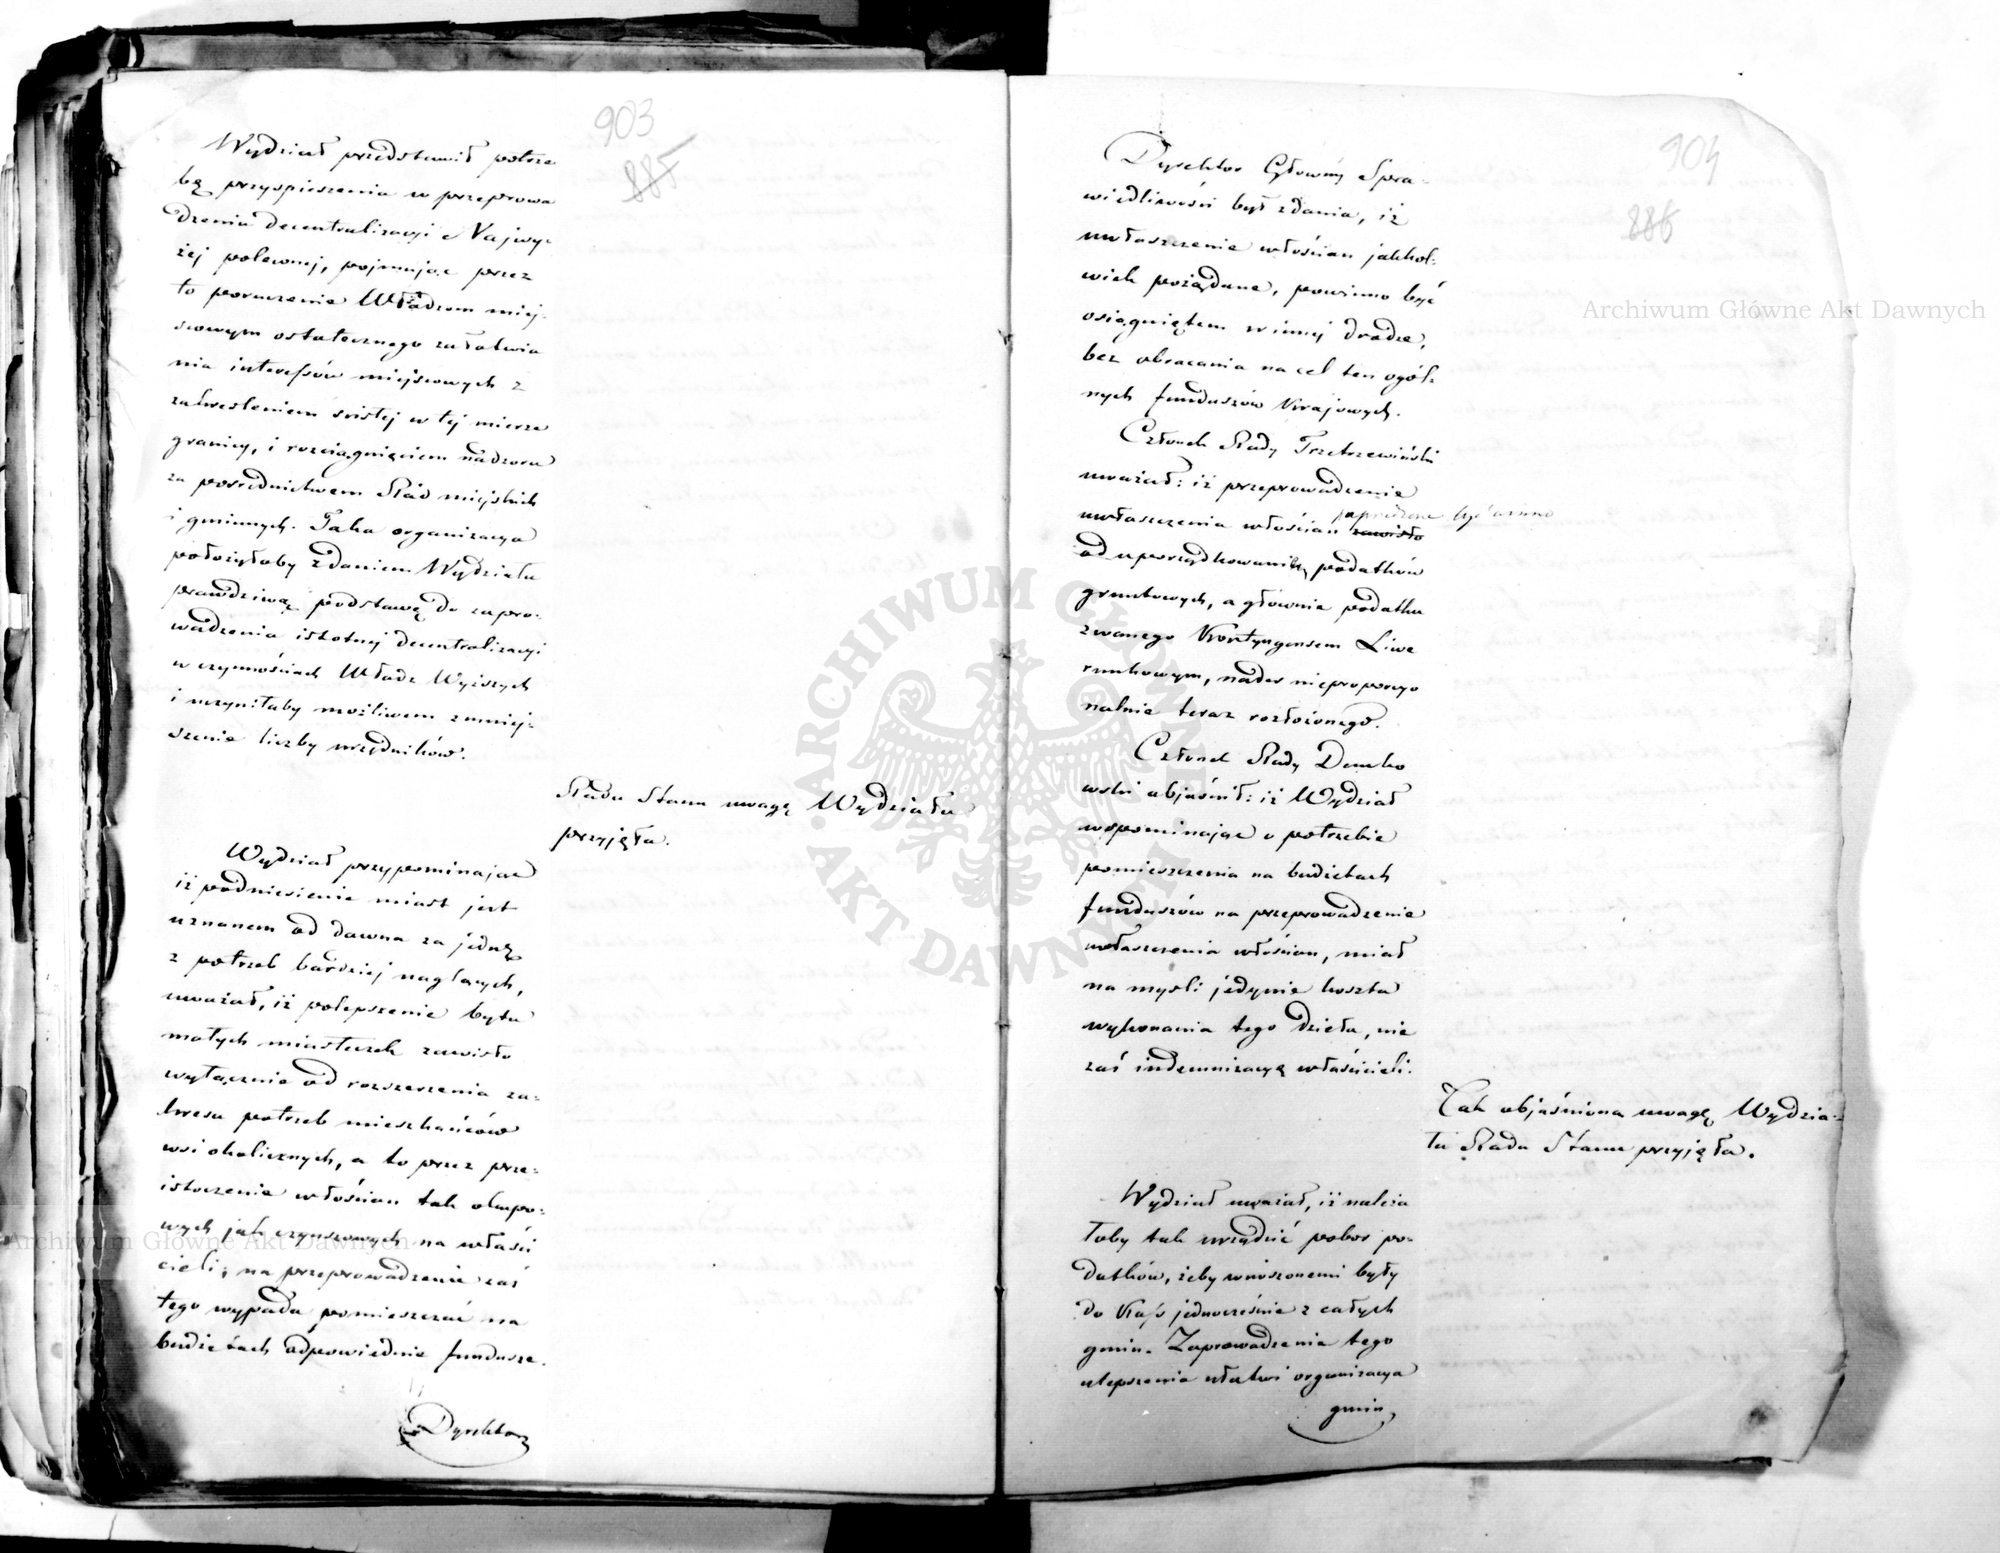 903
885
Wydział przedstawił potrze
bę przyspieszenia w przeprowa
dzeniu decentralizacyi Najwy-
żej poleconej, pojmując przez
to poruczenie Władzom miej-
scowym ostatecznego załatwia
nia interessów miejscowych z
zakreśleniem ścisłej w tej mierze
granicy, i rozciągnięciem nadzoru
za pośrednictwem Rad miejskich
i gminnych. Taka organizacya
położyłaby zdaniem Wydziału
prawdziwą podstawę do zapro-
wadzenia istotnej decentralizacyi
w czynnościach Władz Wyższych
i uczyniłaby możliwem zmniej-
szenie liczby urzędników.
Rada Stanu uwagę Wydziału
przyjęła.
Wydział przypominając
iż podniesienie miast jest
uznanem od dawna za jedną
z potrzeb bardziej naglących,
uważał, iż polepszenie bytu
małych miasteczek zawisło
wyłącznie od rozszerzenia za-
kresu potrzeb mieszkańców
wsi okolicznych, a to przez prze-
istoczenie włościan tak okupo-
wych jak czynszowych na właści
cieli; na przeprowadzenie zaś
tego wypada pomieszczać na
budżetach odpowiednie fundusze.
Dyrektor
904
886
Dyrektor Główny Spra-
wiedliwości był zdania, iż
uwłaszczenie włościan jakkol-
wiek pożądane, powinno być
osiągniętem w innej drodze,
bez obracania na cel ten ogól-
nych funduszów Krajowych.
Członek Rady Trzetrzewiński
uważał: iż przeprowadzenie
poprzedzone być winno
uwłaszczenia włościan zawisło
od uporządkowania podatków
gruntowych, a głównie podatku
zwanego Kontyngensem Liwe
runkowym, nader nieproporcyo
nalnie teraz rozłożonego.
Członek Rady Dembo
wski objaśnił: iż Wydział
wspominając o potrzebie
pomieszczenia na budżetach
funduszów na przeprowadzenie
uwłaszczenia włościan, miał
na myśli jedynie koszta
wykonania tego dzieła, nie
zaś indemnizacyą właścicieli.
Tak objaśnioną uwagę Wydzia-
łu Rada Stanu przyjęła.
Wydział uważał, iż należa
łoby tak urządzić pobór po-
datków, żeby wnoszonemi były
do Kass jednocześnie z całych
gmin. Zaprowadzenia tego
ulepszenia ułatwi organizacya
gmin
Archiwum Główne Akt Dawnych
Archiwum Główne Akt Dawnych
ARCHIWUM GŁÓWNE
AKT DAWNYCH